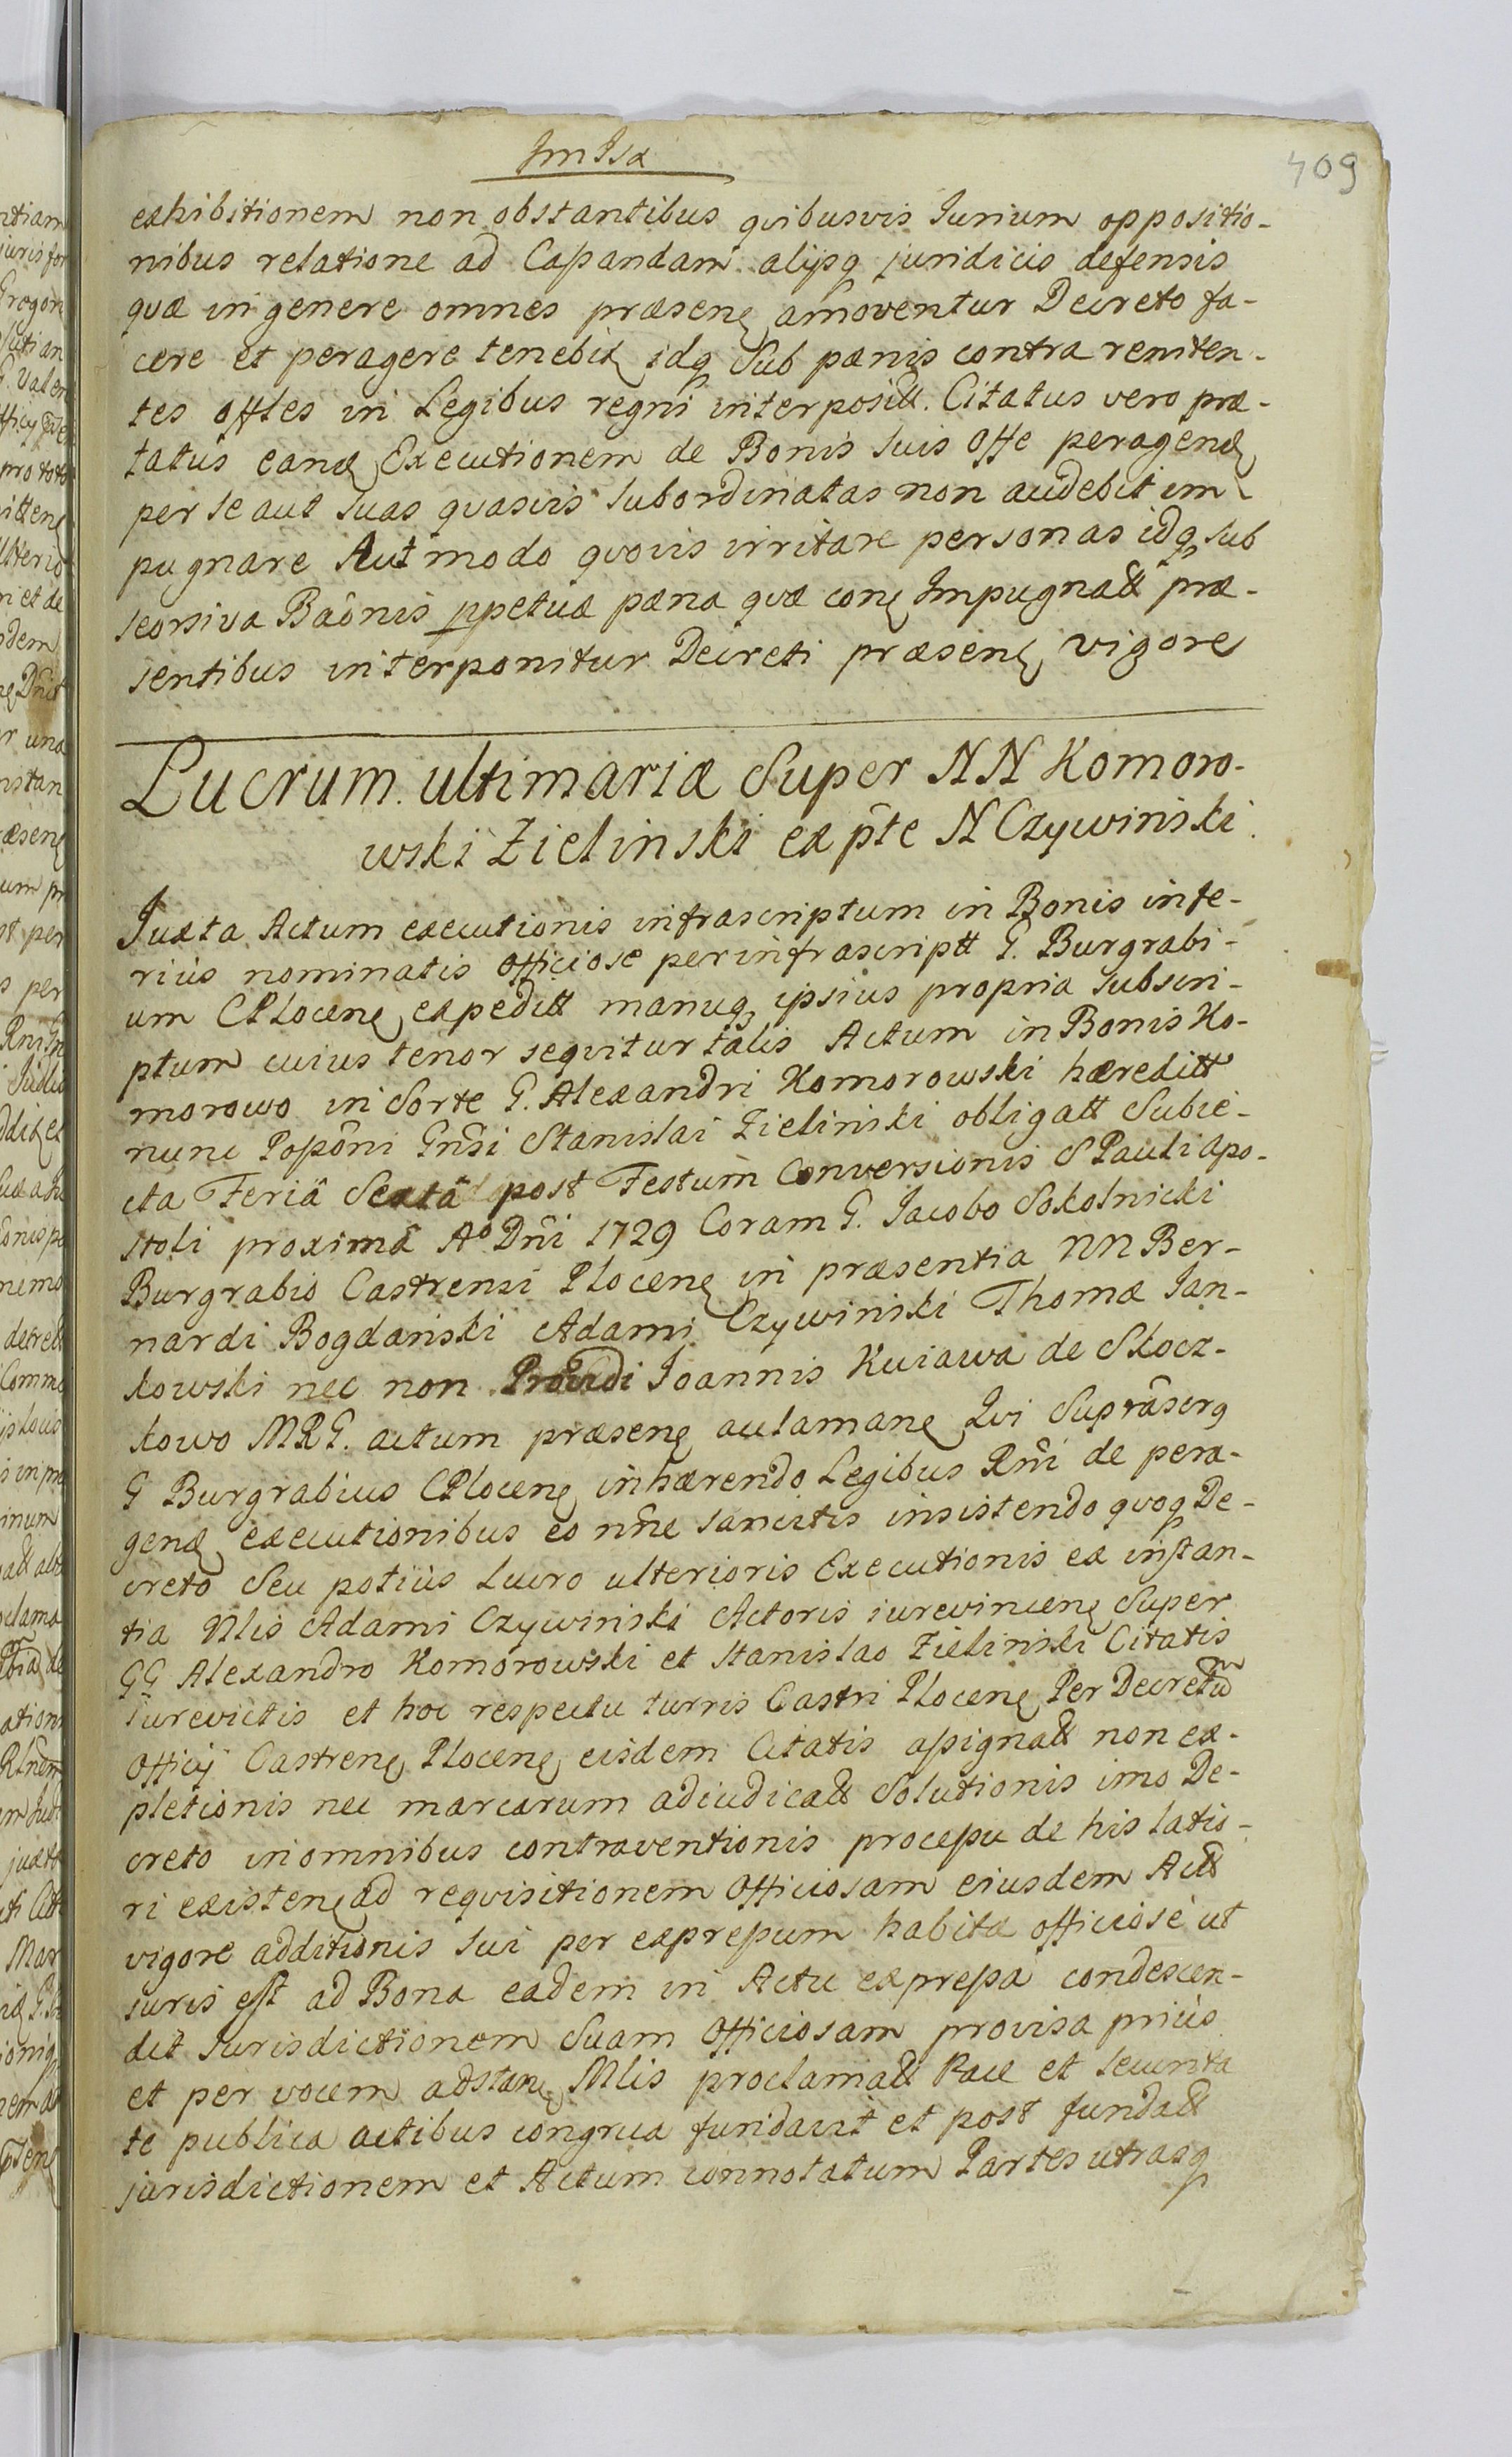 409
exhibitionem non obstantibus quibusvis Iurium oppositio-
nibus relatione ad Cassandam alijsq juridicis defensis
quæ in genere omnes præsenę amoventur Decreto fa-
cere et peragere tenebitʒ idq Sub pænis contra reniten-
tes offles in Legibus regni interposiũ. Citatus vero præ-
tatus eandę Executionem de Bonis suis Offe peragendę
per se aut suas quasvis subordinatas non audebit im-
pugnare Aut modo quovis irritare personas idq sub
seorsiva Baõnis ppetuæ pæna quæ conę Impugnatt præ-
sentibus interponitur Decreti præsenę vigore
Lucrum ultimariæ Super NN Komoro-
wski Zielinski ex pte N Czywinski
Iuxta Actum executionis infrascriptum in Bonis infe-
riùs nominatis officiose per infrascriptt G. Burgrabi-
um CPlocenę expeditt manuq ipsius propria subscri-
ptum cuius tenor sequitur talis Actum in Bonis Ko-
morowo in Sorte G. Alexandri Komorowski hæreditt
nunc Possõni Gnsi Stanislai Zielinski obligatt Subie-
cta Feriâ Sextâ post Festum Conversionis S Pauli Apo-
stoli proximâ Aº Dñi 1729 Coram G. Iacobo Sokolnicki
Burgrabio Castrensi Plocenę in præsentia NN Ber-
nardi Bogdanski Adami Czywinski Thomæ Ian-
kowski nec non Providi Ioannis Kuiawa de Skocz-
kowo MRG. actum præsenę aclamanę Qui Suprãscrq
G Burgrabius CPlocenę inhærendo Legibus Rñi de pera-
gendę executionibus eo nñe sancitis insistendo quoq De-
creto Seu potiùs Lucro ulterioris Executionis ex instan-
tia Nlis Adami Czywinski Actoris iurevincenę Super
GG Alexandro Komorowski et Stanislao Zielinski Citatis
iurevictis et hoc respectu turris Castri Plocenę Per Decretum
Officij Castrenę Plocenę eisdem Citatis assignatt non ex-
pletionis nec marcarum adiudicatt Solutionis imo De-
creto in omnibus contraventionis processu de his latio-
ri existenę ad requisitionem Officiosam eiusdem Actt
vigore additionis sui per expressum habitæ officiosè ut
iuris est ad Bona eadem in Actu expressa condescen-
dit Iurisdictionem Suam Officiosam provisa priùs
et per vocem adstanę Mlis proclamatt Pace et securita
te publica actibus congrua fundavit et post fundatt
jurisdictionem et Actum connotatum Partes utrasq